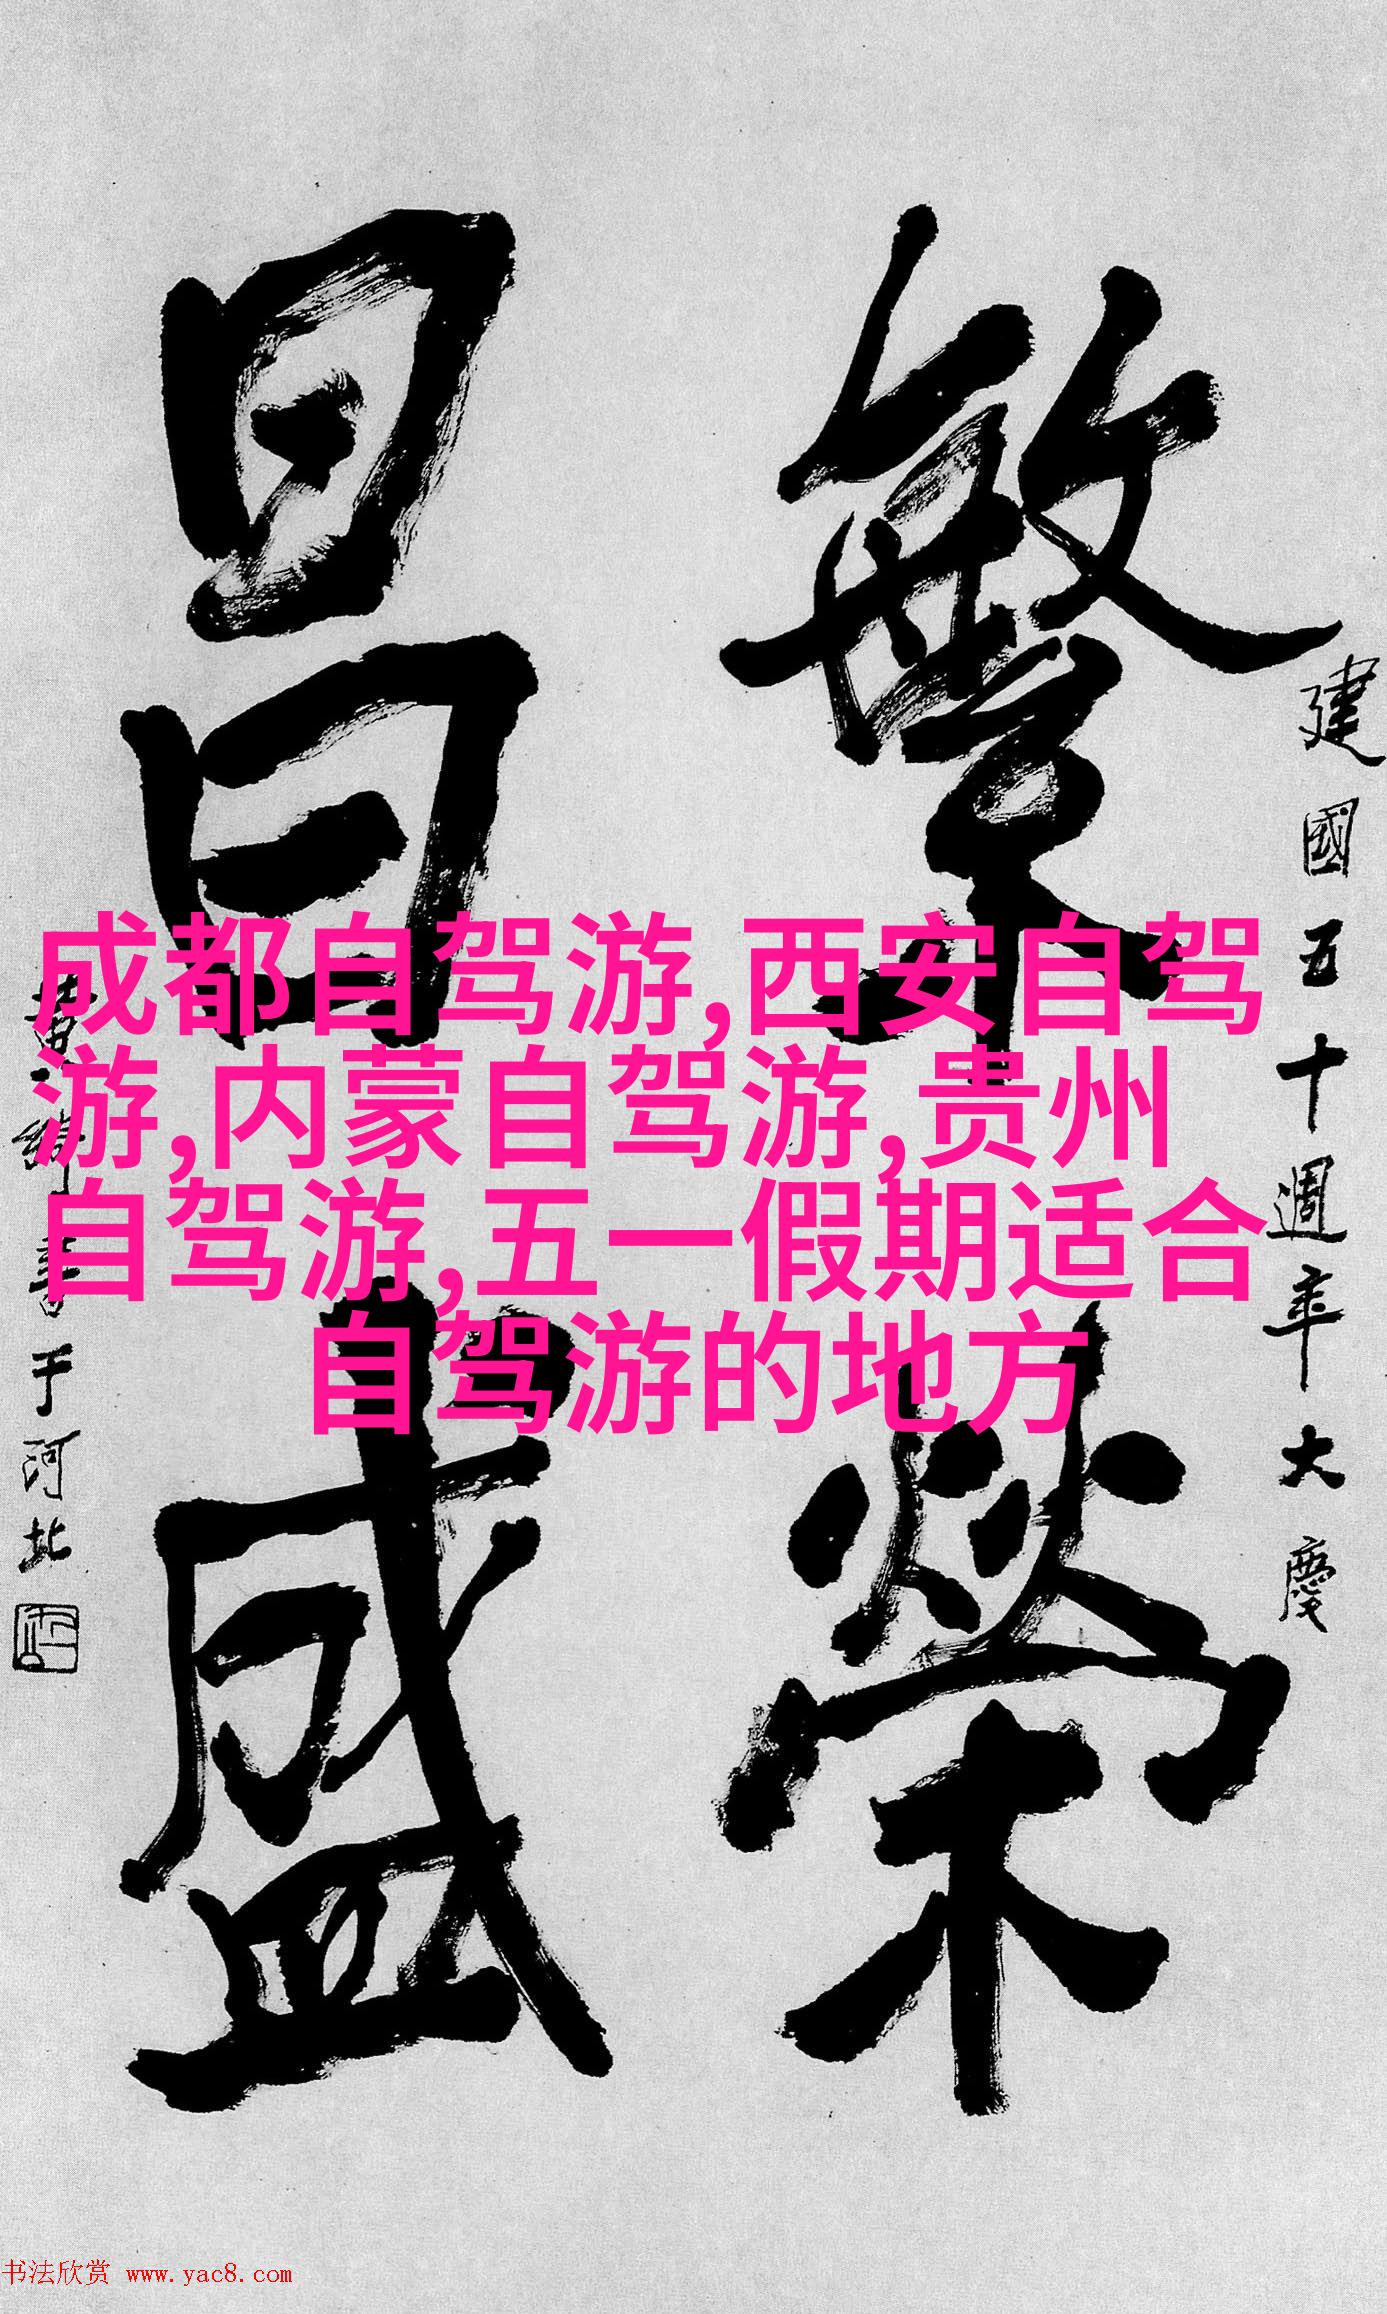 繁榮
昌盛
建國五十週年大慶
黄綺書于河北
成都自驾游,西安自驾
游,内蒙自驾游,贵州
自驾游,五一假期适合
自驾游的地方
书法欣赏 www.yac8.com